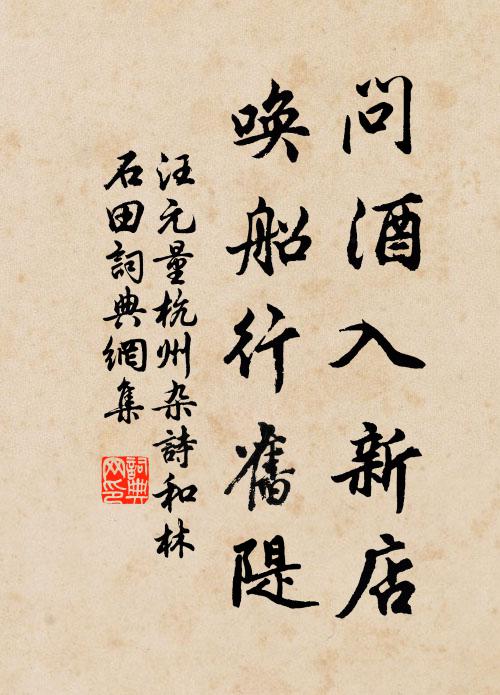 問酒入新店
喚船行舊隄
汪元量杭州杂詩和林
石田詞典網集
詞典网印